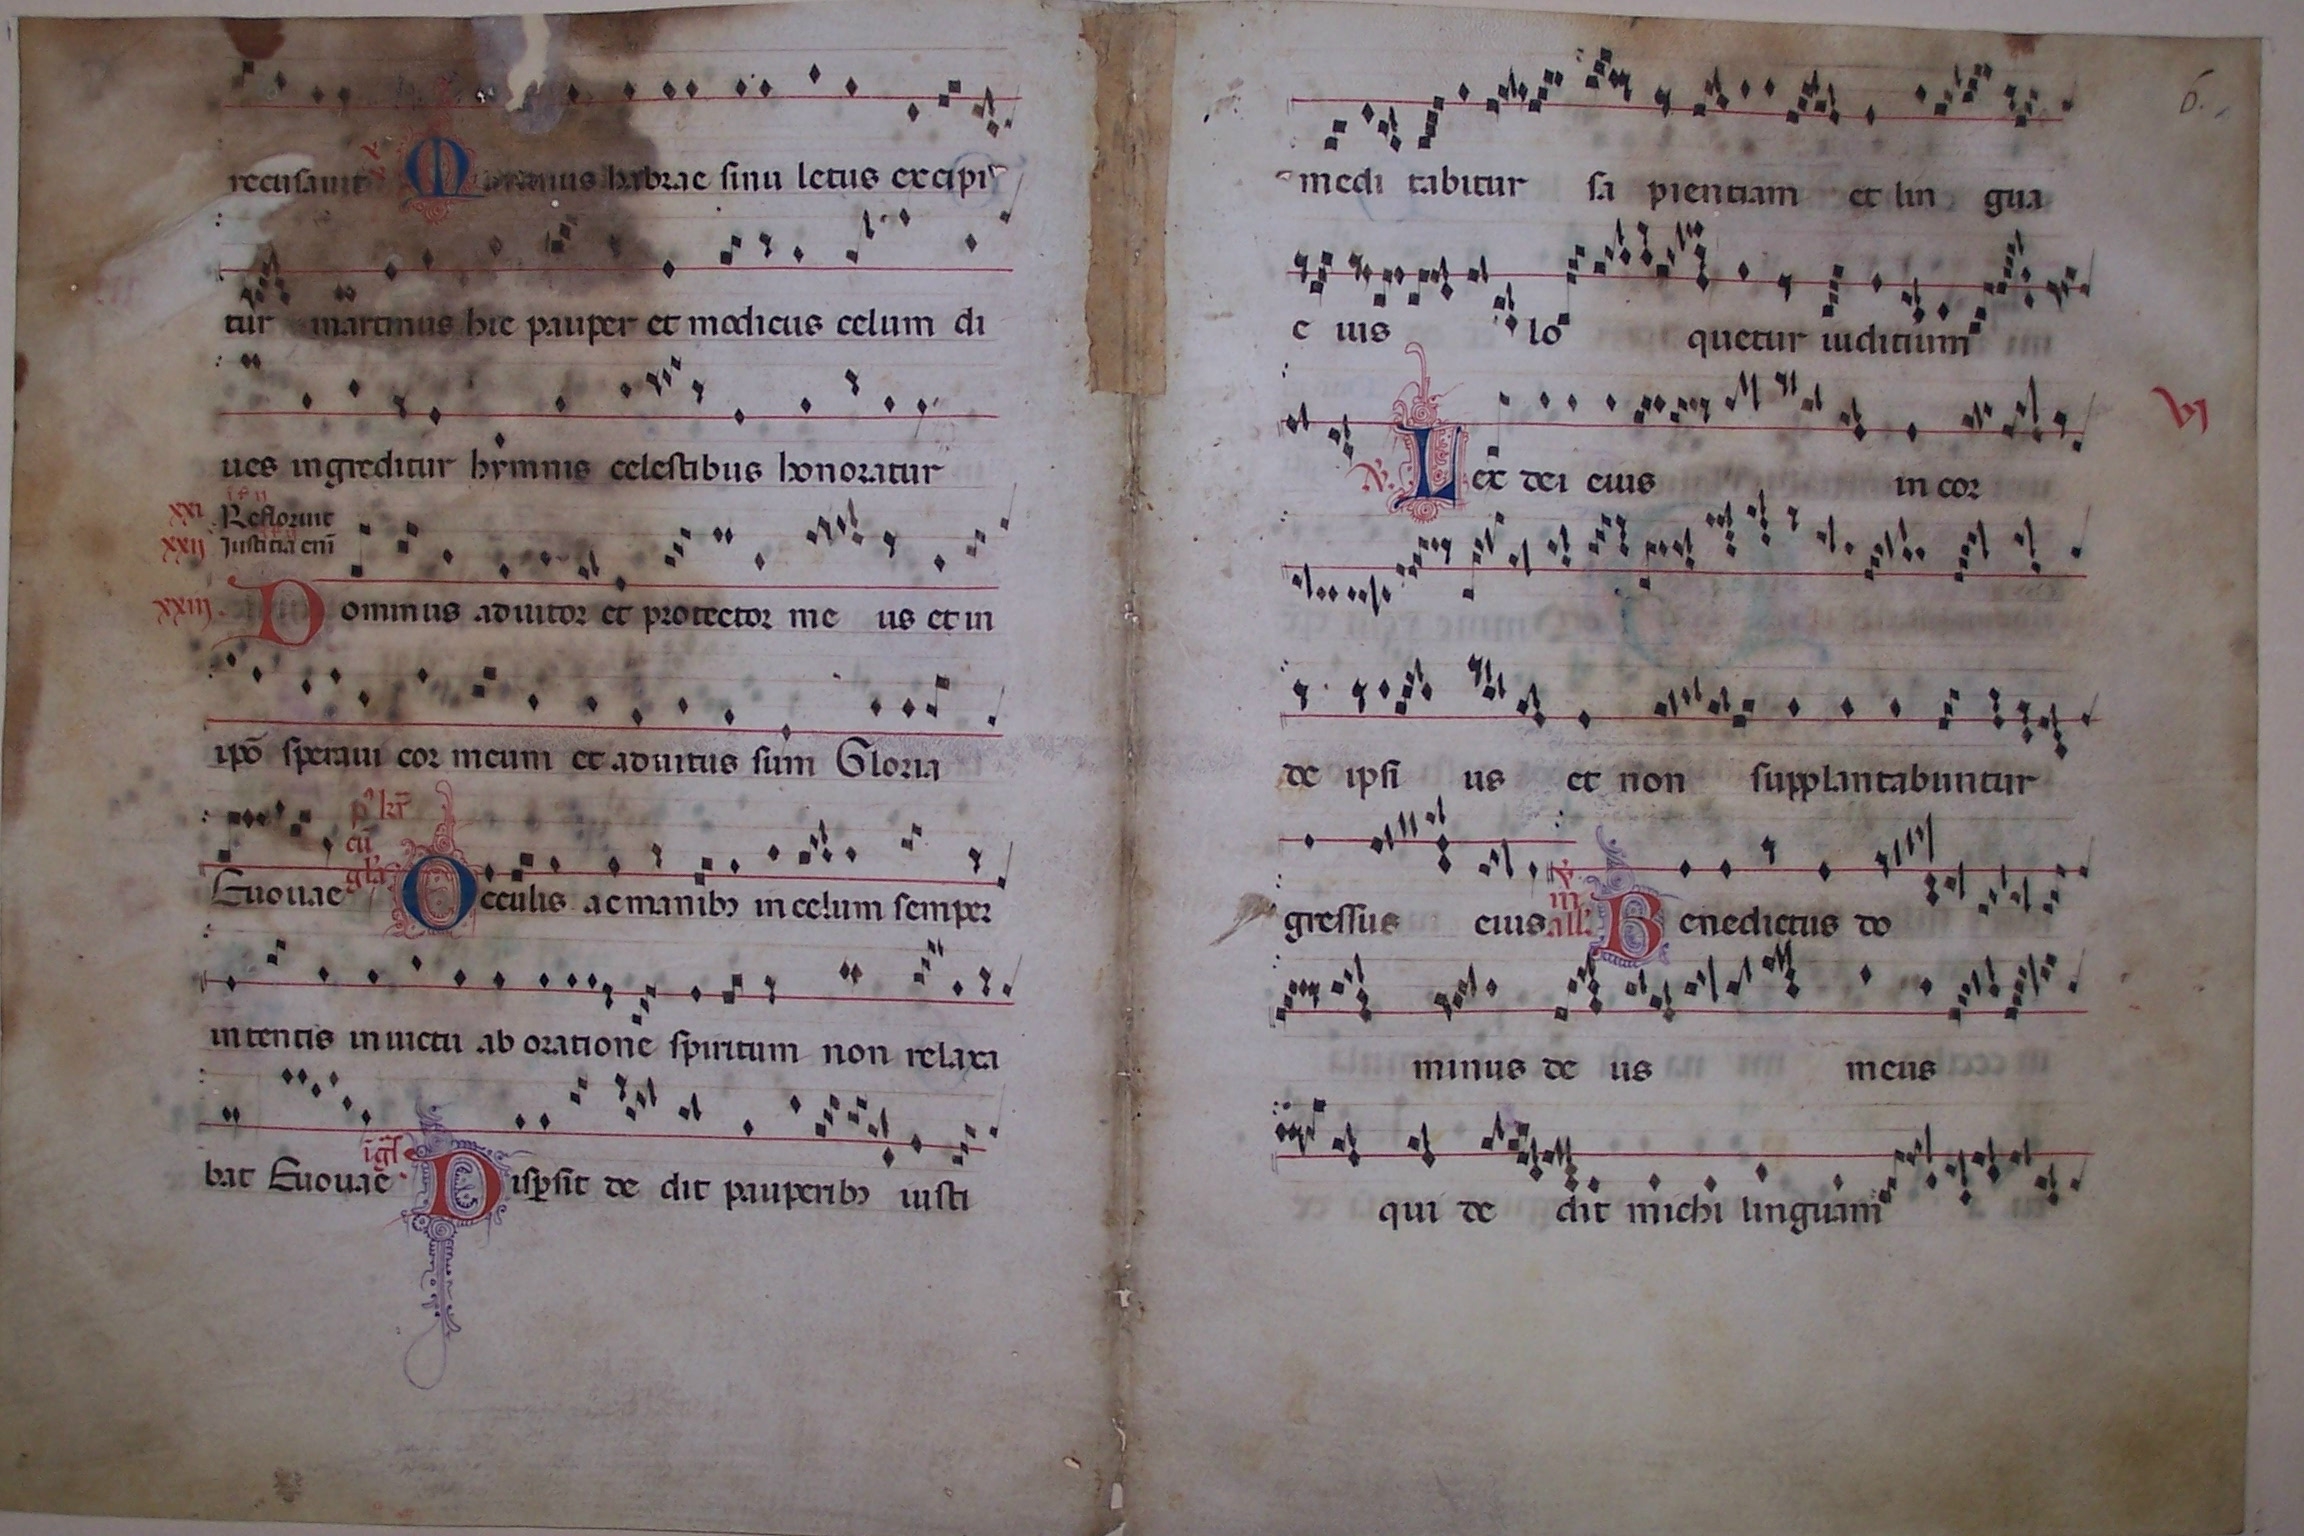 recusauit ℣ Martinus habrae sinu letus excipi
tur martinus hic pauper et modicus celum di
ues ingreditur hymnis celestibus honoratur
xxi Reflorunt
xxii Iustitia eni̅
xxiii Dominus adiutor et protector me us et in
ip̅o speraui cor meum et adiutus sum Gloria
Euouae Occulis ac manibꝫ in celum semper
intentis inuictu ab oratione spiritum non relaxa
bat Euouae Disꝑsit de dit pauperibꝫ iusti
6.
medi tabitur sa pientiam et lin gua
e ius lo quetur iuditium
VI
℣. Lex dei eius in cor
de ipsi us et non supplantabuntur
gressus eius in all' Benedictus do
minus de us meus
qui de dit michi linguam